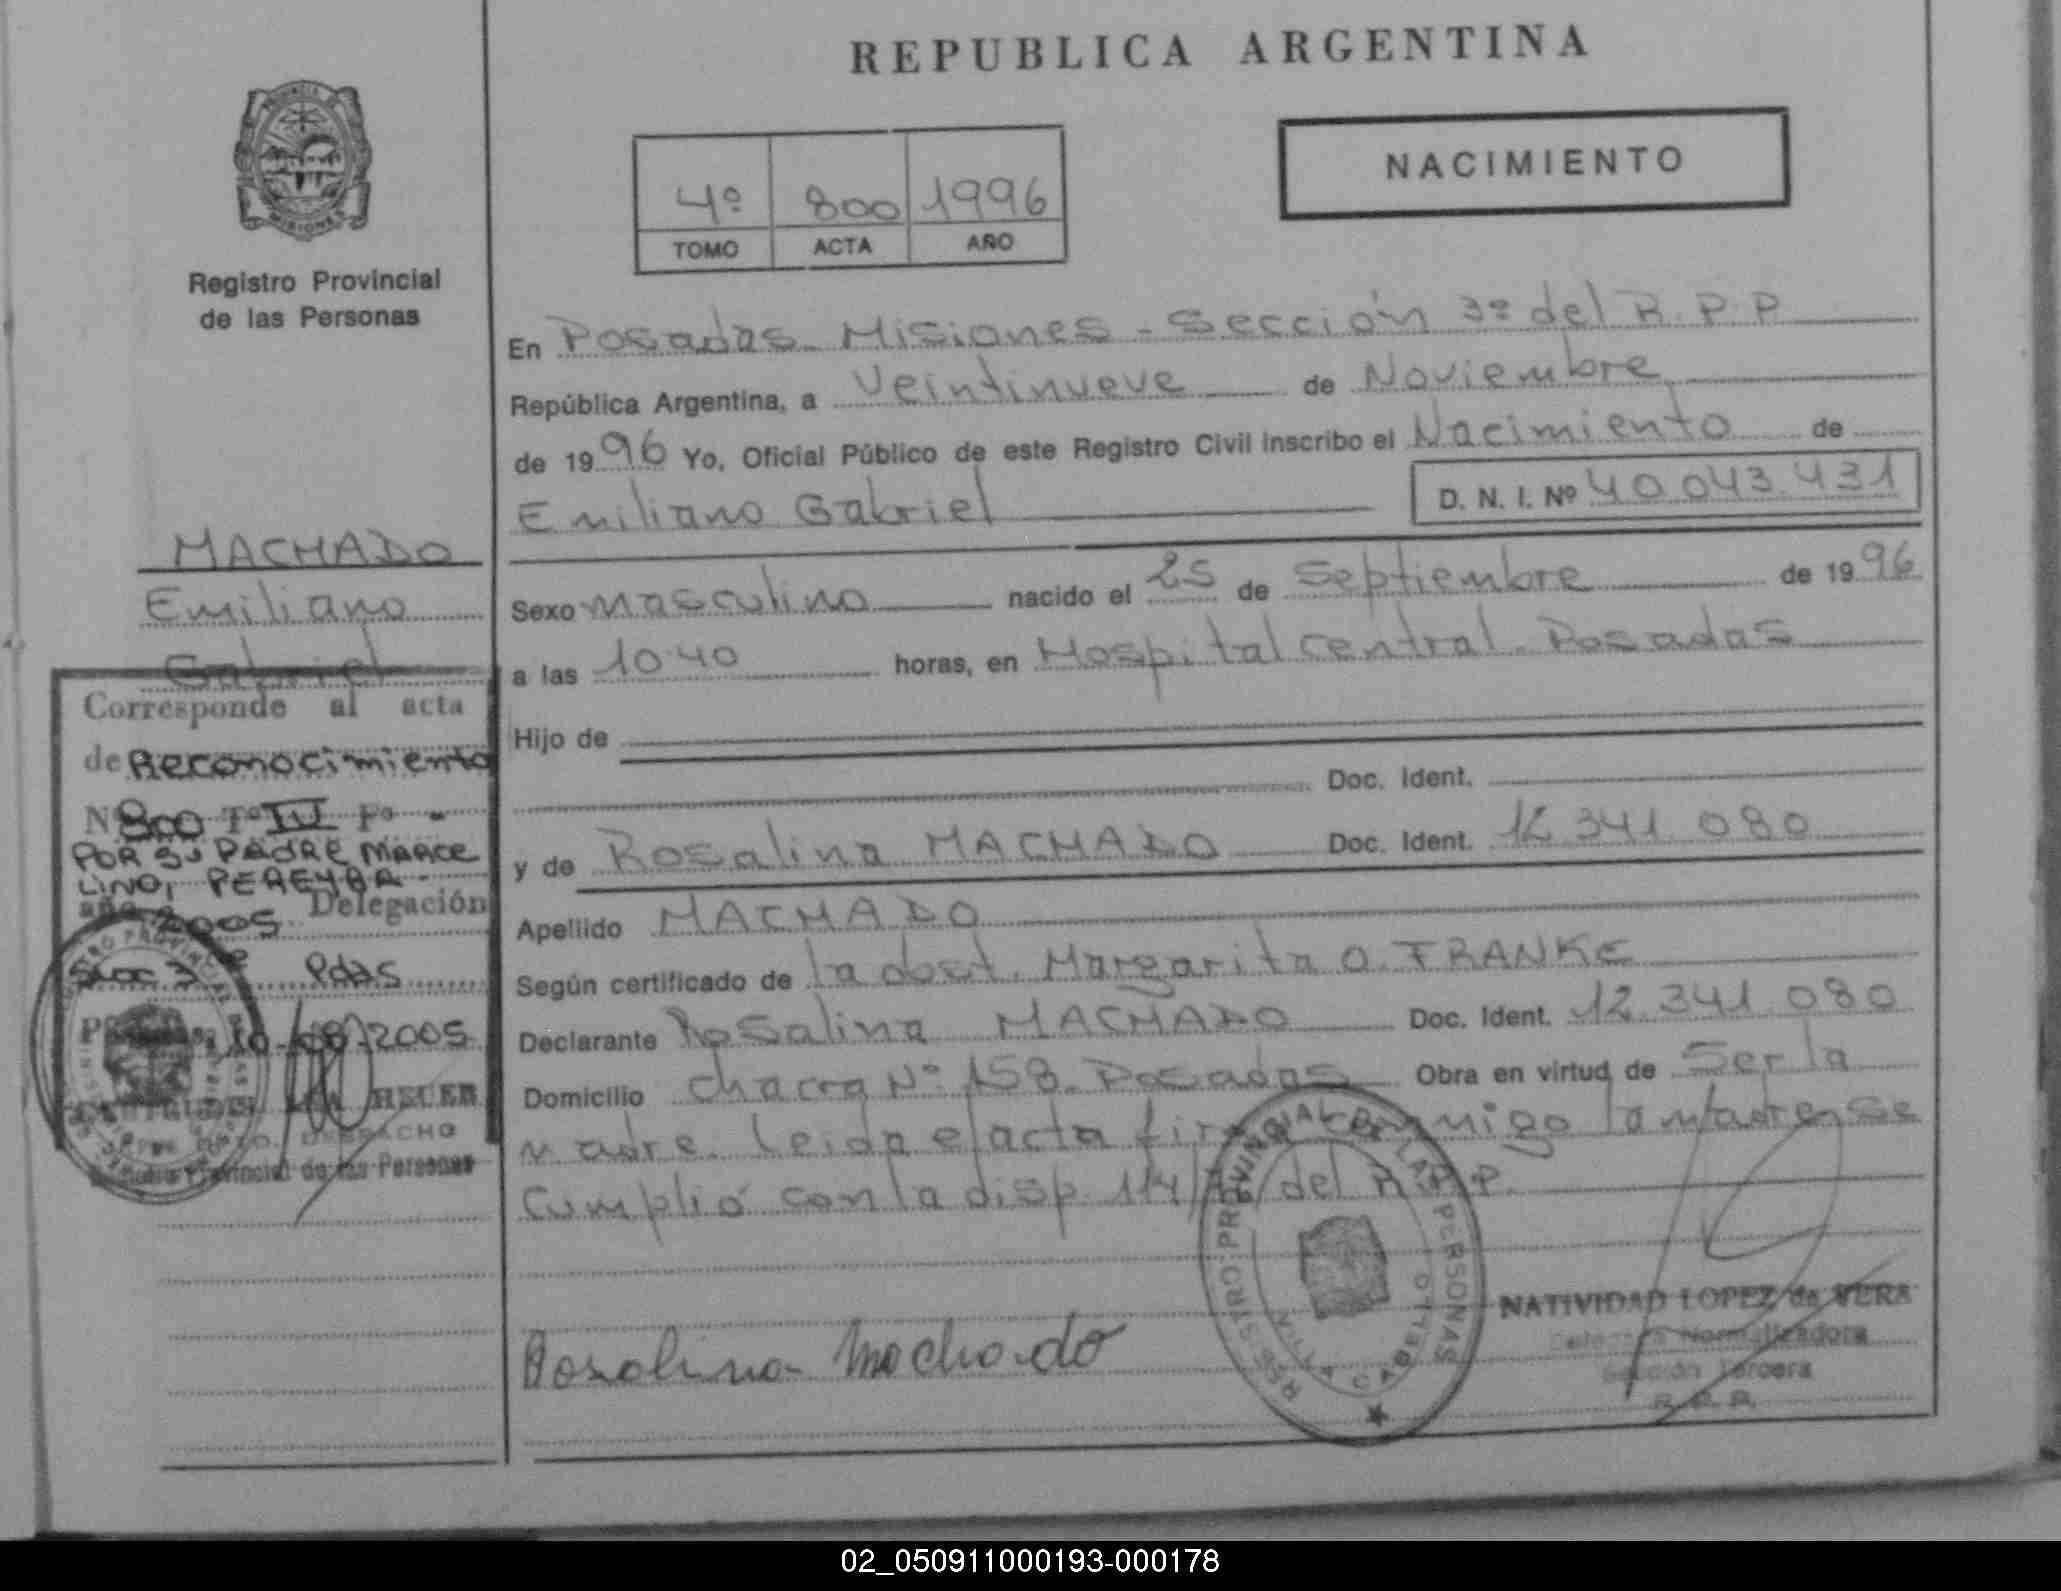 REPUBLICA ARGENTINA
NACIMIENTO
4º 800 1996
TOMO ACTA AÑO
Registro Provincial
de las Personas
En Posadas Misiones - Sección 3º del R.P.P
República Argentina, a Veintinueve de Noviembre
de 1996 Yo, Oficial Público de este Registro Civil inscribo el Nacimiento de
Emiliano Gabriel D. N. I. Nº 40.043.431
Sexo masculino nacido el 25 de Septiembre de 1996
a las 10.40 horas, en Hospital Central. Posadas
Hijo de
Doc. Ident.
y de Rosalina MACHADO Doc. Ident. 12.341.080
Apellido MACHADO
Según certificado de la doct. Margarita O. FRANKE
Declarante Rosalina MACHADO Doc. Ident. 12.341.080
Domicilio Chacra Nº 158. Posadas Obra en virtud de Ser la
madre. Leida el acta la madre se
Cumplió con la disp. 114 del R.P.P.
Rosalina Machado
REGISTRO PROVINCIAL DE LAS PERSONAS
NATIVIDAD LOPEZ de VERA
Delegada Normalizadora
Sección Tercera
R. P. P.
MACHADO
Emiliano
Gabriel
Corresponde al acta
de Reconocimiento
Nº 800 Tº IV Fº -
POR SU PADRE MARCE
LINO, PEREYRA -
año 2005 Delegación
Secc. 3ª Pdas
10-08-2005
DESPACHO
Provincial de las Personas
02_050911000193-000178